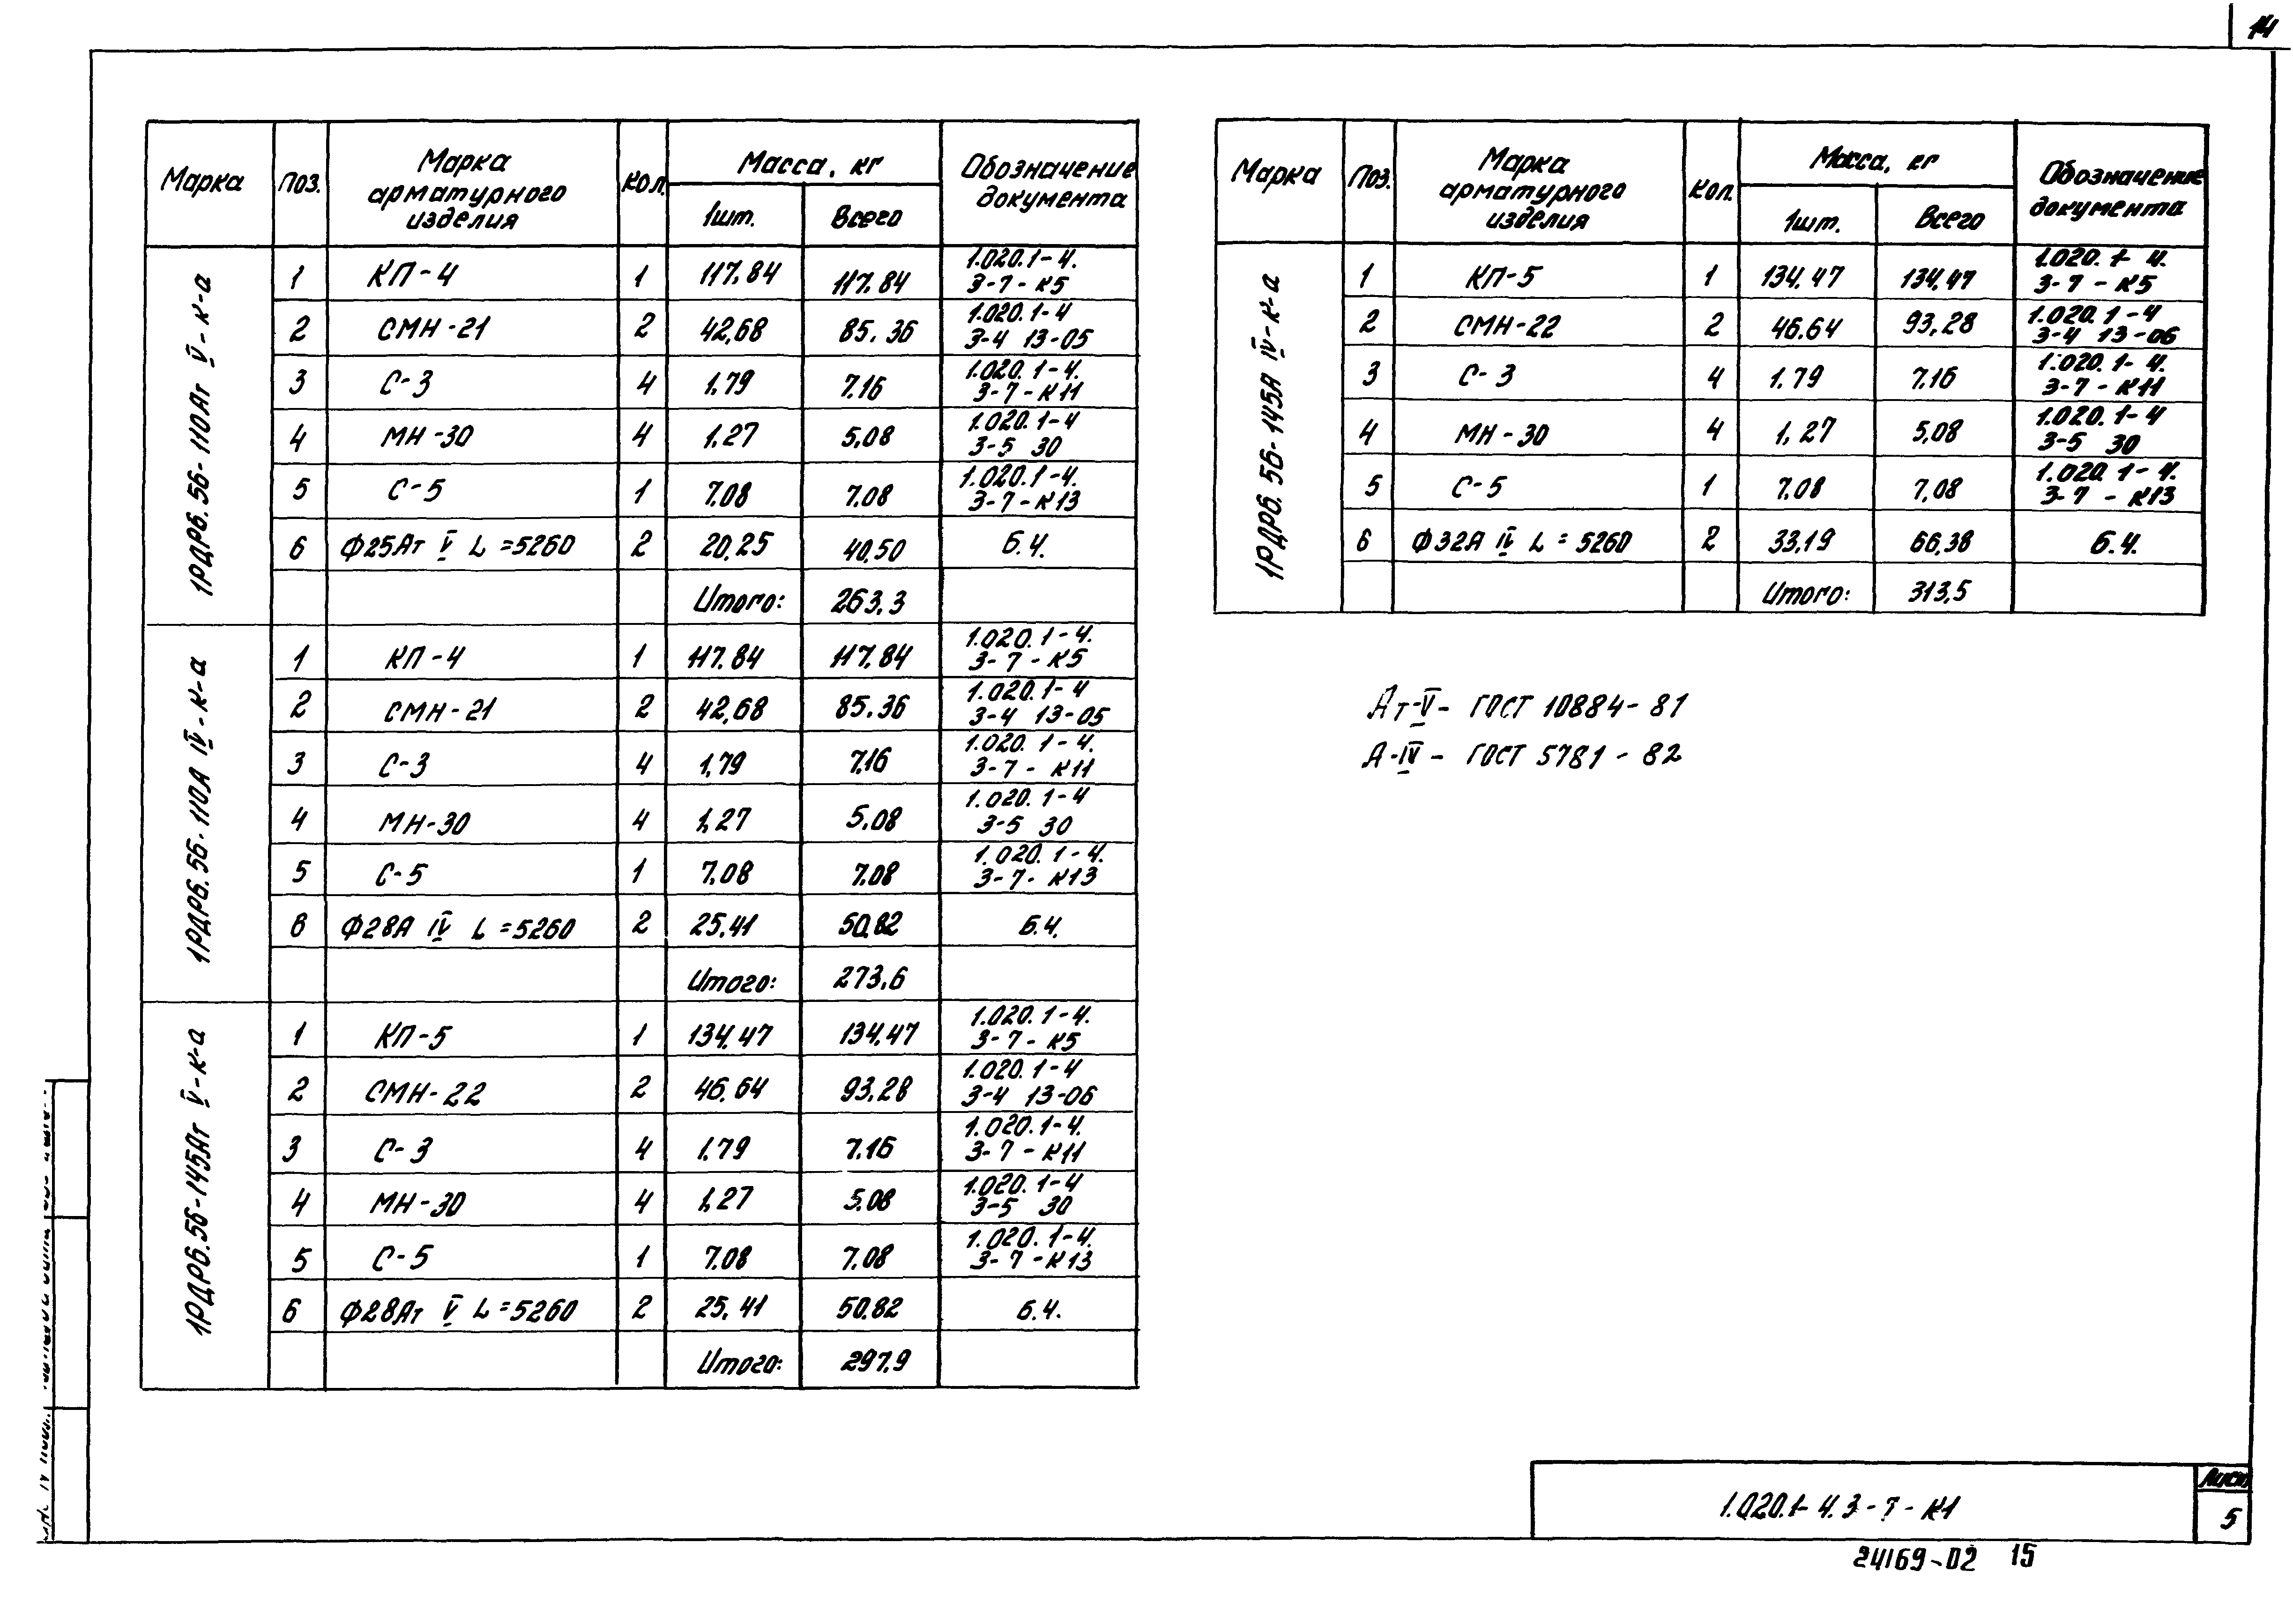 14
Марка Поз. Марка арматурного изделия Кол. Масса, кг Обозначение документа
1шт. Всего
1РДР6.56-110Ат V-к-а
1 КП-4 1 117.84 117.84 1.020.1-4. 3-7-К5
2 СМН-21 2 42,68 85.36 1.020.1-4 3-4 13-05
3 С-3 4 1.79 7.16 1.020.1-4. 3-7-К11
4 МН-30 4 1,27 5,08 1.020.1-4 3-5 30
5 С-5 1 7.08 7.08 1.020.1-4. 3-7-К13
6 Ф25Ат V L=5260 2 20,25 40,50 Б.Ч.
Итого: 263,3
1РДР6.56-110А IV-к-а
1 КП-4 1 117.84 117.84 1.020.1-4. 3-7-К5
2 СМН-21 2 42,68 85.36 1.020.1-4 3-4 13-05
3 С-3 4 1,79 7,16 1.020.1-4. 3-7-К11
4 МН-30 4 1,27 5.08 1.020.1-4 3-5 30
5 С-5 1 7.08 7.08 1.020.1-4. 3-7-К13
6 Ф28А IV L=5260 2 25.41 50.82 Б.Ч.
Итого: 273,6
1РДР6.56-145Ат V-к-а
1 КП-5 1 134.47 134,47 1.020.1-4. 3-7-К5
2 СМН-22 2 46.64 93,28 1.020.1-4 3-4 13-06
3 С-3 4 1.79 7.16 1.020.1-4. 3-7-К11
4 МН-30 4 1,27 5.08 1.020.1-4 3-5 30
5 С-5 1 7.08 7.08 1.020.1-4. 3-7-К13
6 Ф28Ат V L=5260 2 25,41 50.82 Б.Ч.
Итого: 297,9
Марка Поз. Марка арматурного изделия Кол. Масса, кг Обозначение документа
1шт. Всего
1РДР6.56-145А IV-к-а
1 КП-5 1 134,47 134,47 1.020.1-4. 3-7-К5
2 СМН-22 2 46.64 93,28 1.020.1-4 3-4 13-06
3 С-3 4 1.79 7.16 1.020.1-4. 3-7-К11
4 МН-30 4 1,27 5,08 1.020.1-4 3-5 30
5 С-5 1 7.08 7,08 1.020.1-4. 3-7-К13
6 Ф32А IV L=5260 2 33,19 66,38 Б.Ч.
Итого: 313,5
Ат-V- ГОСТ 10884-81
А-IV- ГОСТ 5781-82
1.020.1-4.3-7-К1
Лист
5
24169-02 15